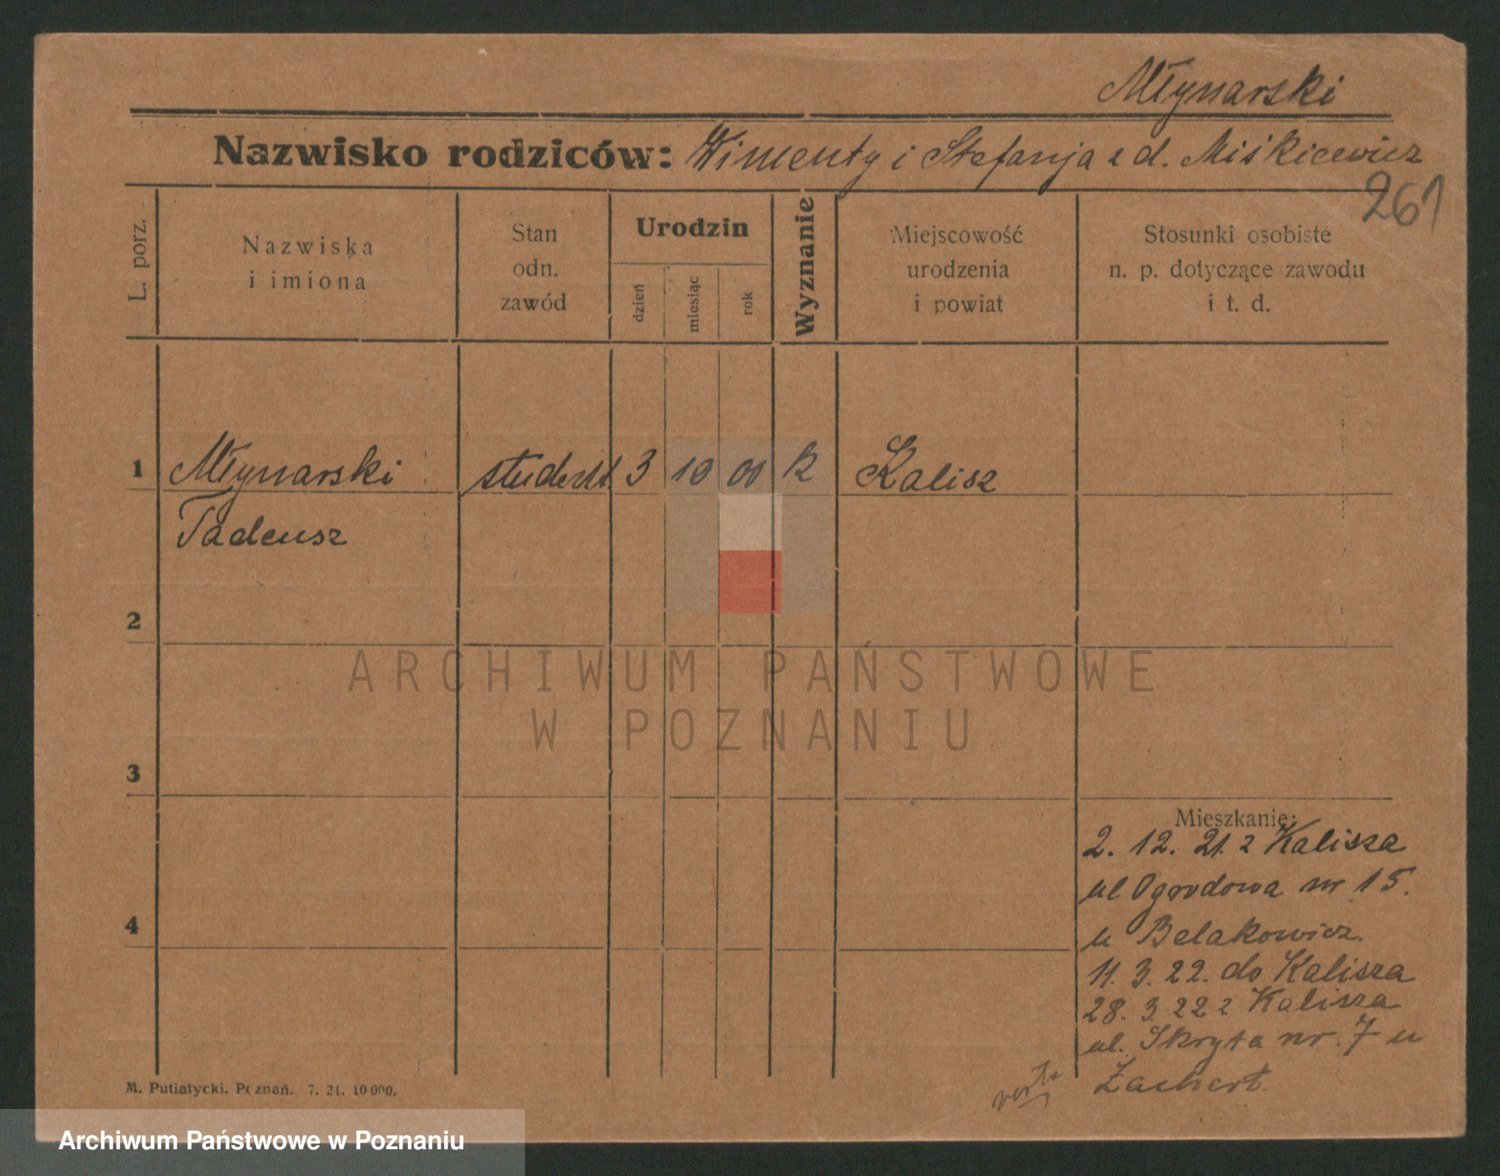 Młynarski
Nazwisko rodziców: Wincenty i Stefanja z d. Miśkiewicz
261
L. porz.
Nazwiska
i imiona
Stan
odn.
zawód
Urodzin
dzień
miesiąc
rok
Wyznanie
Miejscowość
urodzenia
i powiat
Stosunki osobiste
n. p. dotyczące zawodu
i t. d.
1 Młynarski student 3 10 00 k Kalisz
Tadeusz
2
ARCHIWUM PAŃSTWOWE
W POZNANIU
3
Mieszkanie:
2. 12. 21. z Kalisza
ul Ogrodowa nr 15.
4
u Belakowicz
11. 3. 22. do Kalisza
28. 3. 22 z Kalisza
ul. Skryta nr 7 u
Zachert.
verte
M. Putiatycki. Poznań. 7. 21. 10 000.
Archiwum Państwowe w Poznaniu